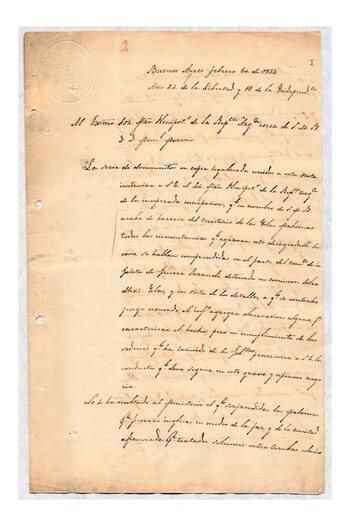 2
1
Buenos Ayres Febrero 14 de 1833
Año 24 de la Libertad y 18 de la Independa
Al Exmo Sor Mtro Plenipoto de la Repca Arga cerca de S. M. B.
D. D. Manl Moreno
La serie de documentos en copia legalizada unidos a esta nota
instruirán a S. E. el Sor Mtro Plenipo de la Repca Arga
de la inesperada ocupacion, qe en nombre de S. M. B.
acaba de hacerse del territorio de las Islas Malvinas.
Todas las circunstancias qe agravan este desagradable su
ceso se hallan comprendidas en el parte del comte de la
Goleta de Guerra Sarandi, detenida en comision sobre
dhas Islas, y en vista de los detalles a qe es contrahido
juzga escusado el infto agregar observacion alguna pa
caracterizar el hecho, pero en cumplimiento de las
ordenes qe ha recivido de su Gobno prescrivirá a S. E. la
conducta qe deve seguir en este grave y espinoso nego
cio.
Se le ha recibido al Ministerio el qe sorprendidas las Malvinas
pr fuerzas inglesas en medio de la paz y de la amistad
afianzada pr tratados solemnes entre ambas Nacio